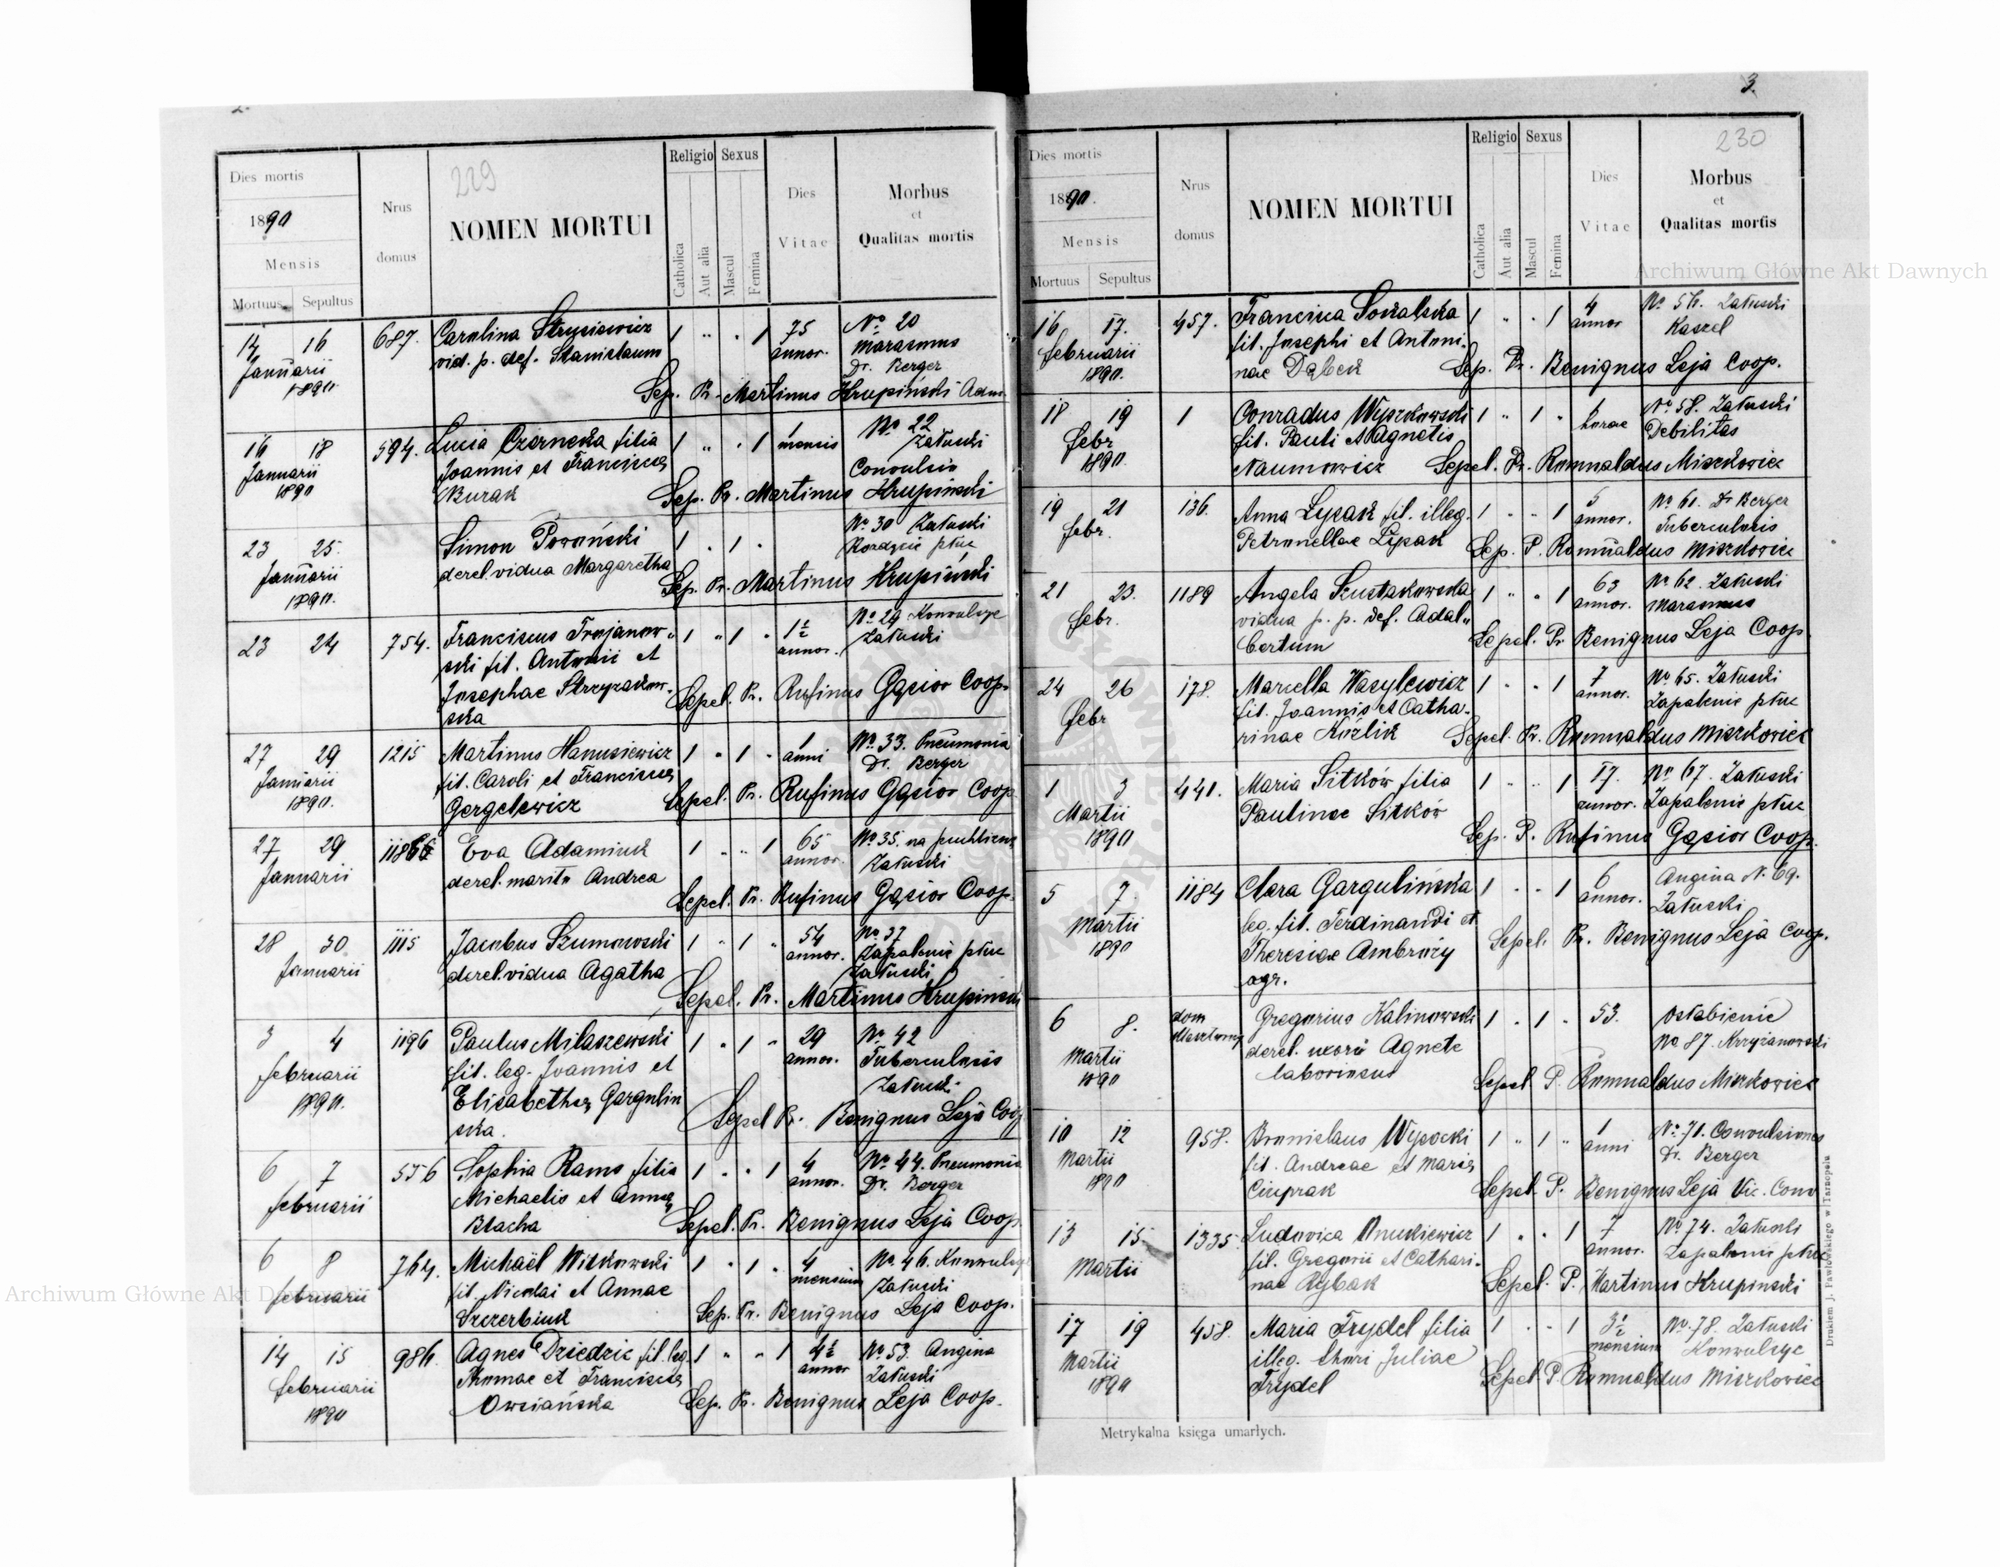 2.
229
Dies mortis
1890
Mensis
Mortuus Sepultus
Nrus
domus
NOMEN MORTUI
Religio
Catholica
Aut alia
Sexus
Mascul
Femina
Dies
Vitae
Morbus
et
Qualitas mortis
14 16 687. Carolina Strysiewicz 1 " " 1 75 No 20
Januarii vid. p. def. Stanislaum annor. Marasmus
1890. Dr. Berger
Sep. Pr. Martinus Krupiński Adm.
16 18 594. Lucia Czarnecka filia 1 " " 1 1 No 22
Januarii Joannis et Franciscae mensis Załuski
1890 Burak Convulsio
Sep. Pr. Martinus Krupiński
23 25. Simon Poroński 1 " 1 " No 30 Załuski
Januarii derel. vidua Margaretha płuc
1890. Sep. Pr. Martinus Krupiński
23 24 754. Franciscus Trojanow- 1 " 1 " 1½ No 29 Konwulsye
ski fil. Antonii et annor. Załuski
Josephae Strzyżakow-
ska Sepel. Pr. Rufinus Gąsior Coop.
27 29 1215 Martinus Hanusiewicz 1 " 1 " 1 No 33. Pneumonia
Januarii fil. Caroli et Franciscae anni Dr. Berger
1890. Gergelewicz Sepel. Pr. Rufinus Gąsior Coop.
27 29 Eva Adamiuk 1 " " 1 65 No 35. na
Januarii derel. marito Andrea annor. Załuski
Sepel. Pr. Rufinus Gąsior Coop.
28 30 1115 Jacobus Szumowski 1 " 1 " 54 No 37
Januarii derel. vidua Agatha annor. Zapalenie płuc
Załuski
Sepel. Pr. Martinus Krupinski
3 4 1196 Paulus Milaszewski 1 " 1 " 29 No 42
februarii fil. leg. Joannis et annor. Tuberculosis
1890. Elisabethae Gargulin Załuski
ska. Sepel Pr. Benignus Leja Coop
6 7 556 Sophia Rams filia 1 " " 1 4 No 44. Pneumonia
februarii Michaelis et Annae annor. Dr. Berger
Blacha Sepel. Pr. Benignus Leja Coop.
6 8 764. Michaël Witkowski 1 " 1 " 4 No 46. Konwulsye
februarii fil. Nicolai et Annae mensium Załuski
Szczerbiuk Sep. Pr. Benignus Leja Coop.
14 15 986. Agnes Dziedzic fil. leg. 1 " " 1 4½ No 53. Angina
februarii Thomae et Franciscae annor Załuski
1890 Owsiańska Sep. Pr. Benignus Leja Coop.
3.
230
Dies mortis
1890.
Mensis
Mortuus Sepultus
Nrus
domus
NOMEN MORTUI
Religio
Catholica
Aut alia
Sexus
Mascul
Femina
Dies
Vitae
Morbus
et
Qualitas mortis
16 17. 457. Francisca Sokalska 1 " " 1 4 No 56. Załuski
februarii fil. Josephi et Antoni- annor Kaszel
1890. nae Dąbek Sep. Pr. Benignus Leja Coop.
18 19 1 Conradus Wyszkowski 1 " 1 " No 58. Załuski
febr fil. Pauli et Agnetis horae Debilitas
1890. Naumowicz Sepel. Pr. Romualdus Miszkowicz
19 21 136. Anna Łypak fil. illeg. 1 " " 1 5 No 61. Dr Berger
febr. Petronellae Łypak annor. Tuberculosis
Sep. P. Romualdus Miszkowicz
21 23. 1189 Angela Szustakowska 1 " " 1 63 No 62. Załuski
febr. vidua p. p. def. Adal- annor. Marasmus
bertum Sepel. Pr Benignus Leja Coop.
24 26 178. Marcella Wasylewicz 1 " " 1 7 No 65. Załuski
febr fil. Joannis et Catha- annor. Zapalenie płuc
rinae Koźlik Sepel. Pr. Romualdus Miszkowicz
1 3 441. Maria Sitków filia 1 " " 1 17. No 67. Załuski
Martii Paulinae Sitków annor. Zapalenie płuc
1890 Sep. P. Rufinus Gąsior Coop.
5 7. 1184 Clara Gargulińska 1 " " 1 6 Angina N. 69.
Martii leg. fil. Ferdinandi et annor. Załuski
1890 Theresiae Ambroży Sepel. Pr. Benignus Leja Coop.
agr.
6 8. dom Gregorius Kalinowski 1 " 1 " 53. osłabienie
Martii klasztorny derel. uxore Agnete No 87. Krzyżanowski
1890 laboriosus Sepel P. Romualdus Miszkowicz
10 12 958. Bronislaus Wysocki 1 " 1 " 1 No. 71. Convulsiones
Martii fil. Andreae et Mariae anni Dr. Berger
1890 Ciuprak Sepel. P. Benignus Leja Vic. Conv
13 15 1335 Ludovica Onukiewicz 1 " " 1 7 No 74. Załuski
Martii fil. Gregorii et Cathari- annor. Zapalenie płuc
nae Rybak Sepel. P. Martinus Krupinski
17 19 458. Maria Trydel filia 1 " " 1 3½ No. 78. Załuski
Martii illeg. Juliae mensium Konwulsye
1890 Trydel Sepel. P. Romualdus Miszkowicz
Metrykalna księga umarłych.
Drukiem J. Pawłowskiego w Tarnopolu
Archiwum Główne Akt Dawnych
Archiwum Główne Akt Dawnych